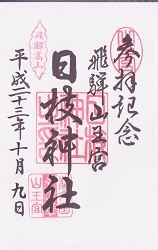 参拝記念
飛騨山王宮
日枝神社
平成二十三年十月九日
飛騨高山
山王宮